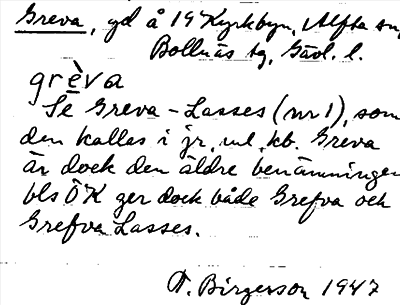 Greva, gd å 19 Kyrkbyn, Alfta sn,
Bollnäs tg, Gävl. l.
grèva
Se Greva-Lasses (nr 1), som
den kallas i jr, ml. kb. Greva
är dock den äldre benämningen
bls ÖK ger dock både Grefva och
Grefva Lasses.
T. Birgerson 1947